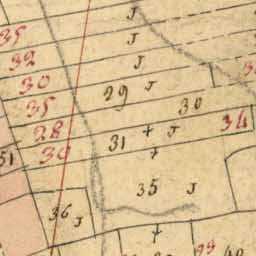 J
35
J
32
J
30
29 J
35
30
34
28
31 J
39
51
35 J
36 J